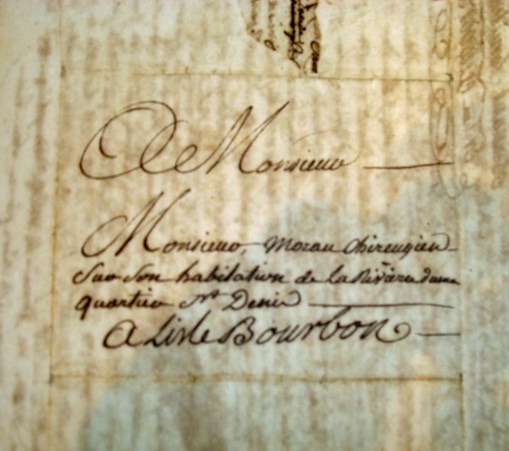 A Monsieur
Monsieur, Morau Chirurgien
Sur Son habitation de la Rivière
quartier St Denis
A Lisle Bourbon